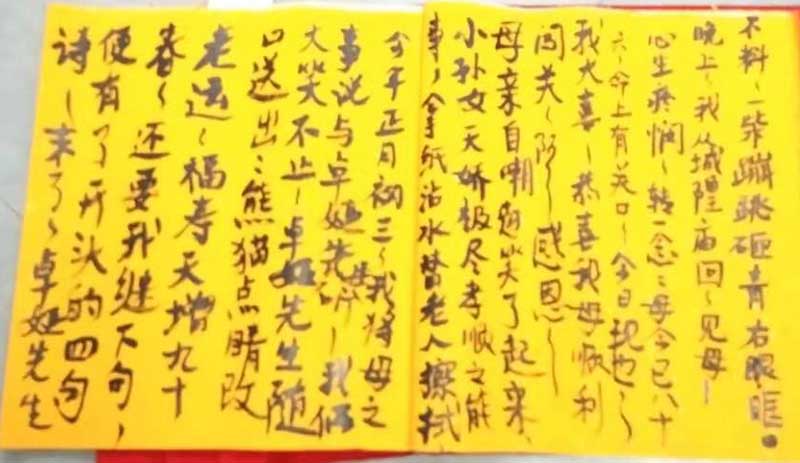 不料、一柴蹦跳砸青右眼眶。
晚上、我从城隍庙回、见母、
心生疼悯、转一念：母今已八十
六、命上有关口、今日现也、
我大喜、恭喜我母顺利
闯关、阿、感恩、
母亲自嘲 笑了起来、
小孙女天娇极尽孝顺之能
事，拿纸沾水替老人擦拭，
今年正月初三、我将母之
事说与卓娅先生听、我俩
大笑不止、卓娅先生随
口送出：熊猫点睛改
老运、福寿天增九十
春、还要我继下句，
便有了开头的四句
诗、末了、卓娅先生